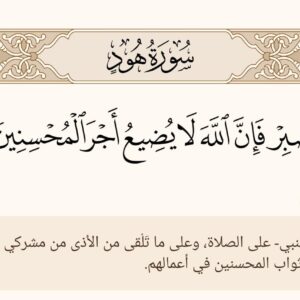 سُورَةُ هُودٍ
صْبِرْ فَإِنَّ ٱللَّهَ لَا يُضِيعُ أَجْرَ ٱلْمُحْسِنِينَ
على الصلاة، وعلى ما تَلْقى من الأذى من مشركي
ثواب المحسنين في أعمالهم.